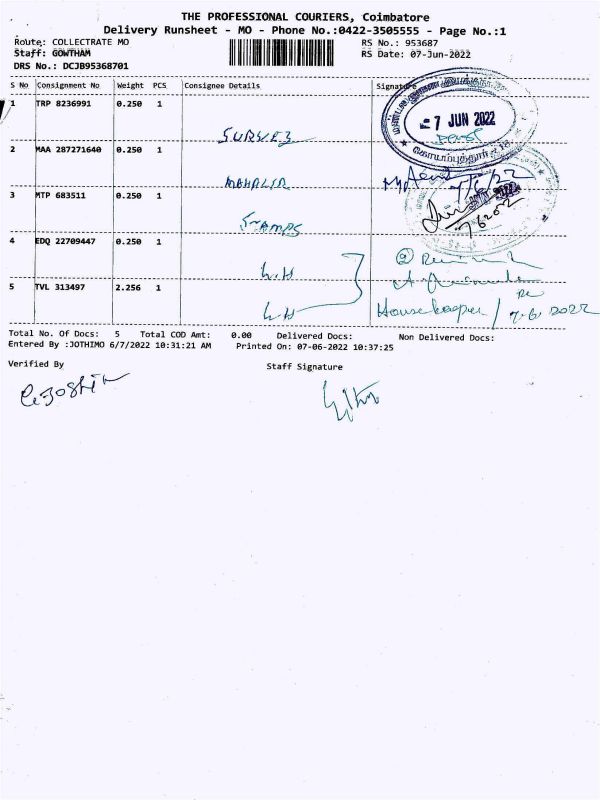 THE PROFESSIONAL COURIERS, Coimbatore
Delivery Runsheet - MO - Phone No.:0422-3505555 - Page No.:1
Route: COLLECTRATE MO RS No.: 953687
Staff: GOWTHAM RS Date: 07-Jun-2022
DRS No.: DCJB95368701
S No Consignment No Weight PCS Consignee Details Signature
1 TRP 8236991 0.250 1
-7 JUN 2022
SURVEY
2 MAA 287271640 0.250 1
7/6/22
3 MTP 683511 0.250 1
7/6/2022
STAMPS
4 EDQ 22709447 0.250 1
L.H
5 TVL 313497 2.256 1
L.H
House keeper / 7.6.2022
Total No. Of Docs: 5 Total COD Amt: 0.00 Delivered Docs: Non Delivered Docs:
Entered By :JOTHIMO 6/7/2022 10:31:21 AM Printed On: 07-06-2022 10:37:25
Verified By Staff Signature